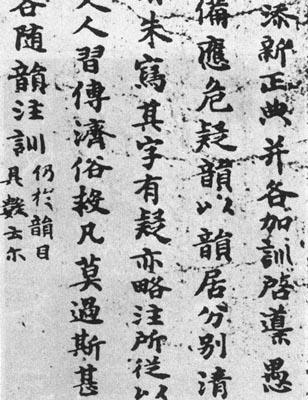 添新正典并各加訓啓導愚
備應危疑韻以韻居分別清
朱寫其字有疑亦略注所從以
人人習傳濟俗救凡莫過斯甚
各隨韻注訓
仍於韻目
具數云尒